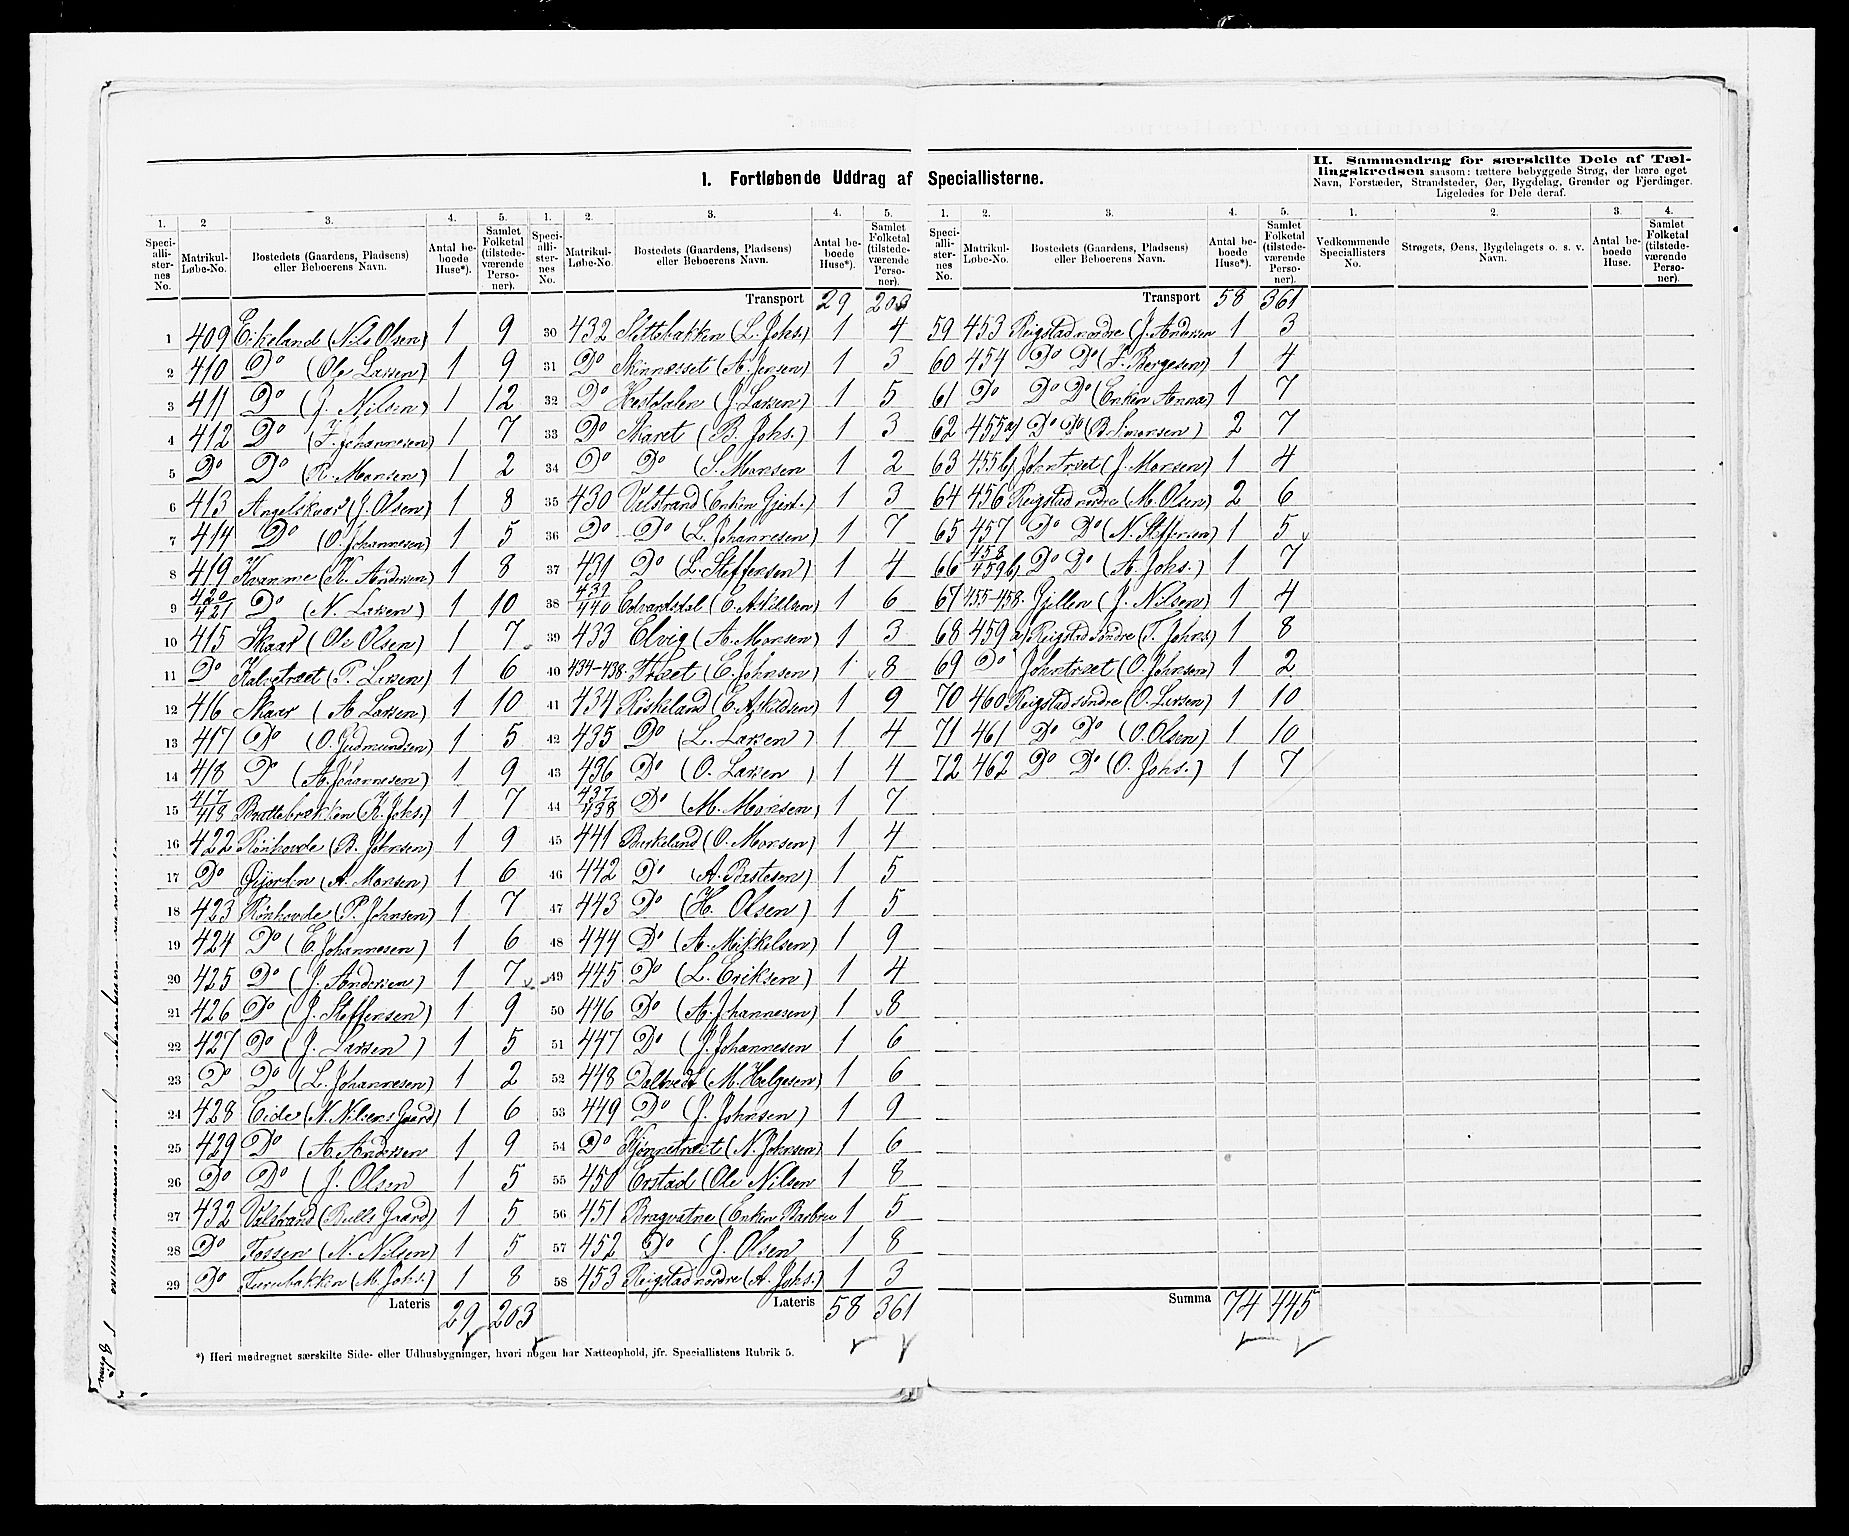 I. Fortløbende Uddrag af Speciallisterne.
II. Sammendrag for særskilte Dele af Tællingskredsen saasom: tættere bebyggede Strøg, der bære eget
Navn, Forstæder, Strandsteder, Øer, Bygdelag, Grender og Fjerdinger.
Ligeledes for Dele deraf.
1. 2 3. 4. 5.
Speciallisternes No. Matrikul-Løbe-No. Bostedets (Gaardens, Pladsens) eller Beboerens Navn. Antal beboede Huse*). Samlet Folketal (tilstedeværende Personer).
1 409 Eikeland (Nils Olsen) 1 9
2 410 Do (Ole Larsen) 1 9
3 411 Do (J. Nilsen) 1 12
4 412 Do (J. Johannesen) 1 7
5 Do Do (R. Monsen) 1 2
6 413 Angelskaar (J. Olsen) 1 8
7 414 Do (O. Johannesen) 1 5
8 419 Kvamme (K. Andersen) 1 8
9 420/421 Do (N. Larsen) 1 10
10 415 Skaar (Ole Olsen) 1 7
11 Do Kalvetræet (P. Larsen) 1 6
12 416 Skaar (A Larsen) 1 10
13 417 Do (O. Gudmundsen) 1 5
14 418 Do (A. Johannesen) 1 9
15 417/418 Brattebrækken (K. Johs.) 1 7
16 422 Rønhovde (B. Johnsen) 1 9
17 Do Gjerden (A. Monsen) 1 6
18 423 Rønhovde (P. Johnsen) 1 7
19 424 Do (E. Johannesen) 1 6
20 425 Do (J. Andersen) 1 7
21 426 Do (J. Steffensen) 1 9
22 427 Do (J. Larsen) 1 5
23 Do Do (L. Johannesen) 1 2
24 428 Eide (N. Nilsens Gaard) 1 6
25 429 Do (A. Andersen 1 9
26 Do Do (J. Olsen 1 5
27 432 Valstrand (Bulls Gaard) 1 5
28 Do Fossen (N. Nilsen) 1 5
29 Do Furubakken (M. Johs.) 1 8
Lateris 29 203
1. 2. 3. 4. 5.
Speciallisternes No. Matrikul-Løbe-No. Bostedets (Gaardens, Pladsens) eller Beboerens Navn. Antal beboede Huse*). Samlet Folketal (tilstedeværende Personer).
Transport 29 203
30 432 Slettebakken (L. Johs.) 1 4
31 Do Skinnesset (A. Jensen) 1 3
32 Do Hestdalen (J. Larsen) 1 5
33 Do Skaret (B. Johs.) 1 3
34 Do Do (S. Monsen 1 2
35 430 Valstrand (Enken Gjert.) 1 3
36 Do Do (L. Johannesen) 1 7
37 431 Do (L. Steffensen) 1 4
38 439/440 Edvardsdal (O. Askildsen) 1 6
39 433 Elvig (A. Monsen) 1 3
40 434-438. Træet (E. Johnsen) 1 8
41 434 Røskeland (E. Askildsen) 1 9
42 435 Do (L. Larsen) 1 4
43 436 Do (O. Larsen ) 1 4
44 437/438 Do (M. Monsen) 1 7
45 441 Birkeland (O. Monsen) 1 4
46 442 Do (A. Bastesen) 1 5
47 443 Do (H. Olsen) 1 5
48 444 Do (A. Mikkelsen) 1 9
49 445 Do (L. Eriksen) 1 4
50 446 Do (A. Johannesen) 1 8
51 447 Do (J. Johannesen 1 6
52 448 Daltvedt (M. Helgesen) 1 6
53 449 Do (J. Johnsen) 1 9
54 Do Kjønnetræet (N. Johnsen) 1 6
55 450 Erstad (Ole Nilsen 1 8
56 451 Bragvatne (Enken Barbru 1 5
57 452 Do (J. Olsen 1 8
58 453 Reigstad nordre (A. Johs.) 1 3
Lateris 58 361
1. 2. 3. 4. 5.
Speciallisternes No. Matrikul-Løbe-No. Bostedets (Gaardens, Pladsens) eller Beboerens Navn. Antal beboede Huse*). Samlet Folketal (tilstedeværende Personer).
Transport 58 361
59 453 Reigstad nordre (J. Andersen 1 3
60 454 Do Do (J. Børgesen) 1 4
61 Do Do Do (Enken Anna) 1 7
62 455a) Do Do (B. Simonsen) 2 7
63 455b) Johntræet (J. Monsen) 1 4
64 456 Reigstad nordre (M. Olsen) 2 6
65 457 Do Do (N. Steffensen) 1 5
66 458/459b) Do Do (A. Johs.) 1 7
67 455-458. Gjillen (J. Nilsen) 1 4
68 459 a) Reigstad søndre (T. Johns) 1 8
69 Do Johntræet (O. Johnsen) 1 2
70 460 Reigstad søndre (O. Larsen) 1 10
71 461 Do Do (O. Olsen) 1 10
72 462 Do Do (O. Johs.) 1 7
Summa 74 445
1. 2. 3. 4.
Vedkommende Speciallisters No. Strøgets, Øens, Bygdelagets o. s. v. Navn. Antal beboede Huse. Samlet Folketal (tilstedeværende Personer).
*) Heri medregnet særskilte Side- eller Udhusbygninger, hvori nogen har Natteophold, jfr. Speciallistens Rubrik 5.